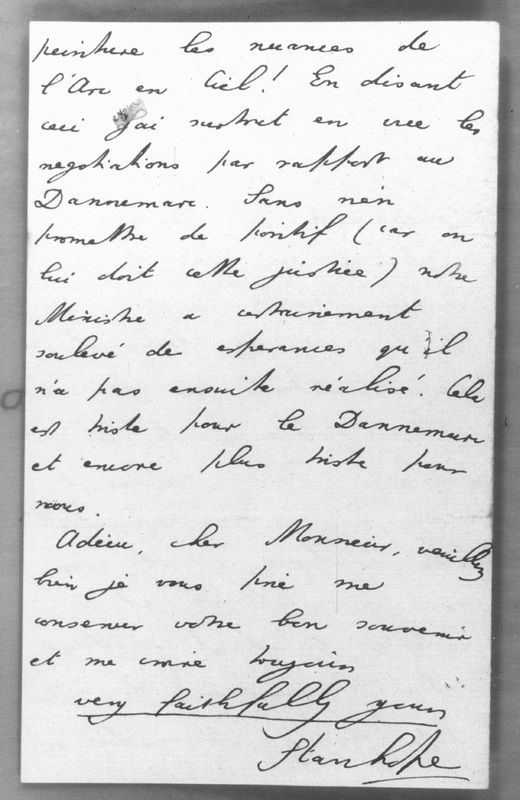 peinture les nuances de
l'Arc en Ciel! En disant
ceci j'ai surtout en vue les
negotiations par rapport au
Dannemarc. Sans rien
promettre de positif (car on
lui doit cette justice) notre
Ministre a certainement
soulevé de esperances qu'il
n'a pas ensuite réalisé. Cela
est triste pour le Dannemarc
et encore plus triste pour
nous.
Adieu, cher Monsieur, veuillez
bien je vous prie me
conserver votre bon souvenir
et me croire toujours
very faithfully yours
Stanhope